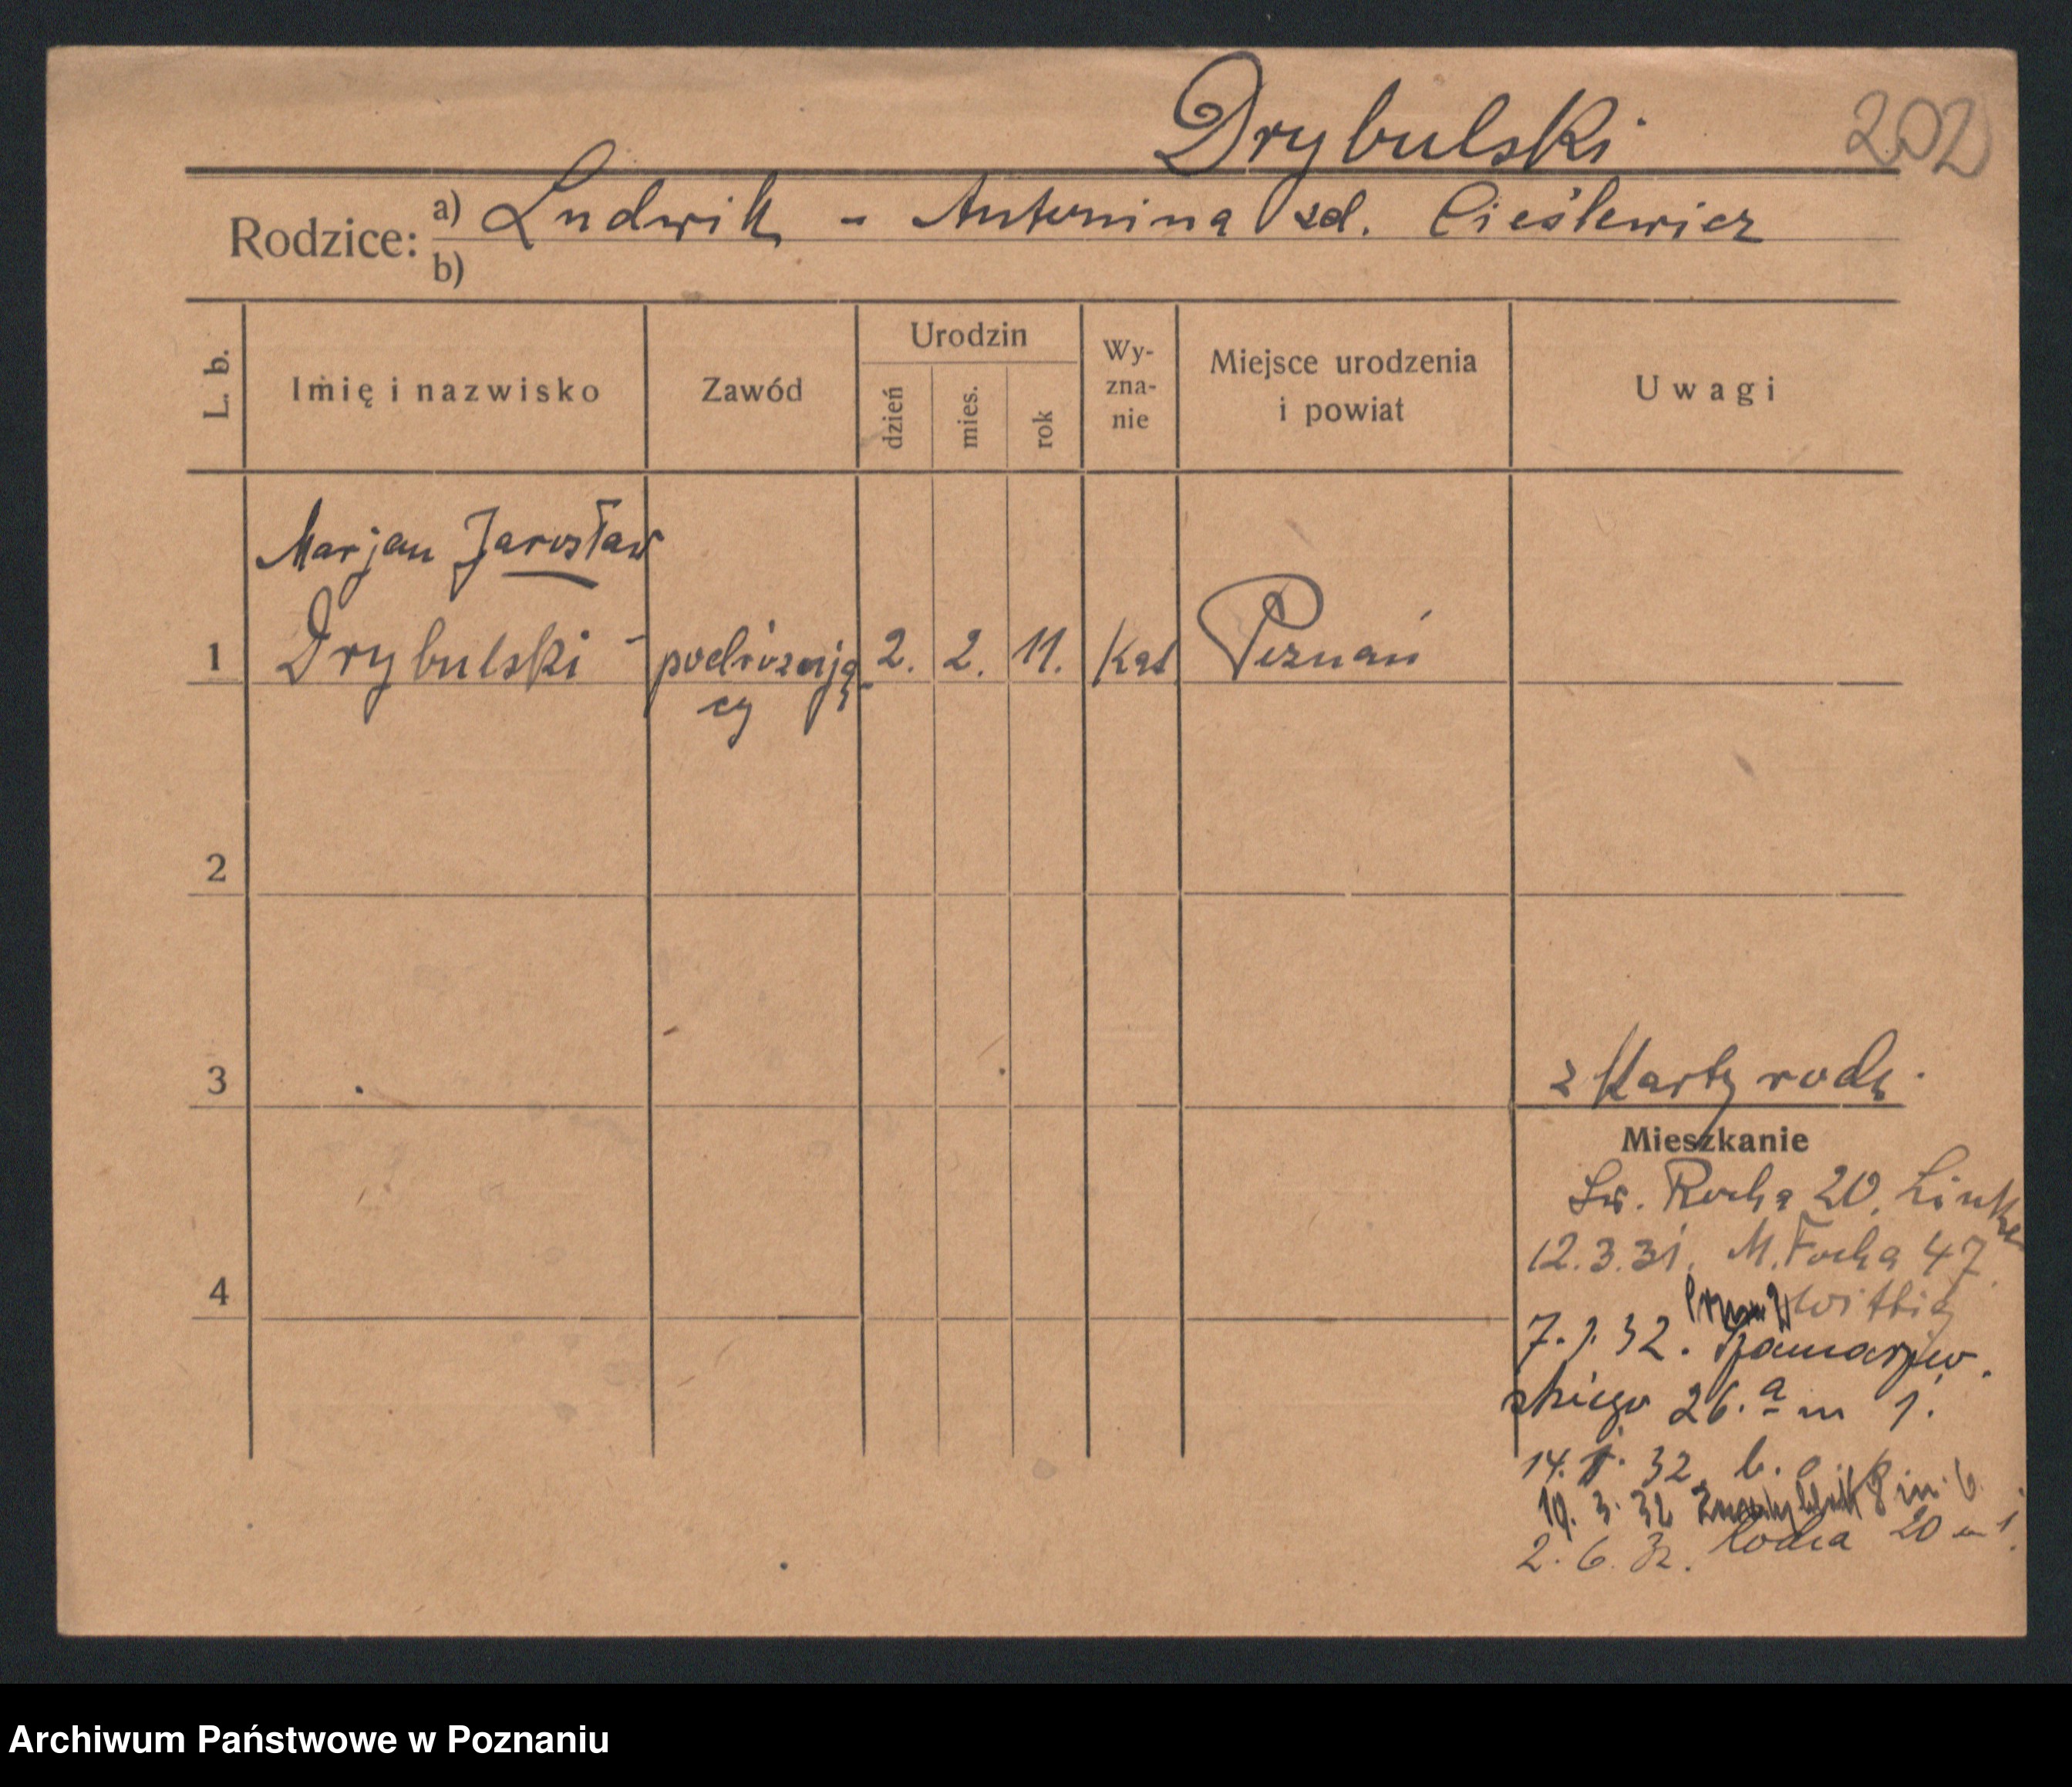 Drybulski 202
Rodzice: a) Ludwik - Antonina zd. Cieślewicz
b)
L. b. Imię i nazwisko Zawód Urodzin dzień mies. rok Wy-zna-nie Miejsce urodzenia i powiat Uwagi
Marjan Jarosław
1 Drybulski - podróżują- 2. 2. 11. Kat Poznań
cy
2
3
z Karty rodz.
Mieszkanie
Św. Rocha 20, Linke
12.3.31. M. Focha 47
4
Wittig
7. 1. 32. Szamarzew.
skiego 26.a m 1.
14. 32
19. 3. 32 8 m. 6
2. 6. 32. Rocha 20 m 1.
Archiwum Państwowe w Poznaniu